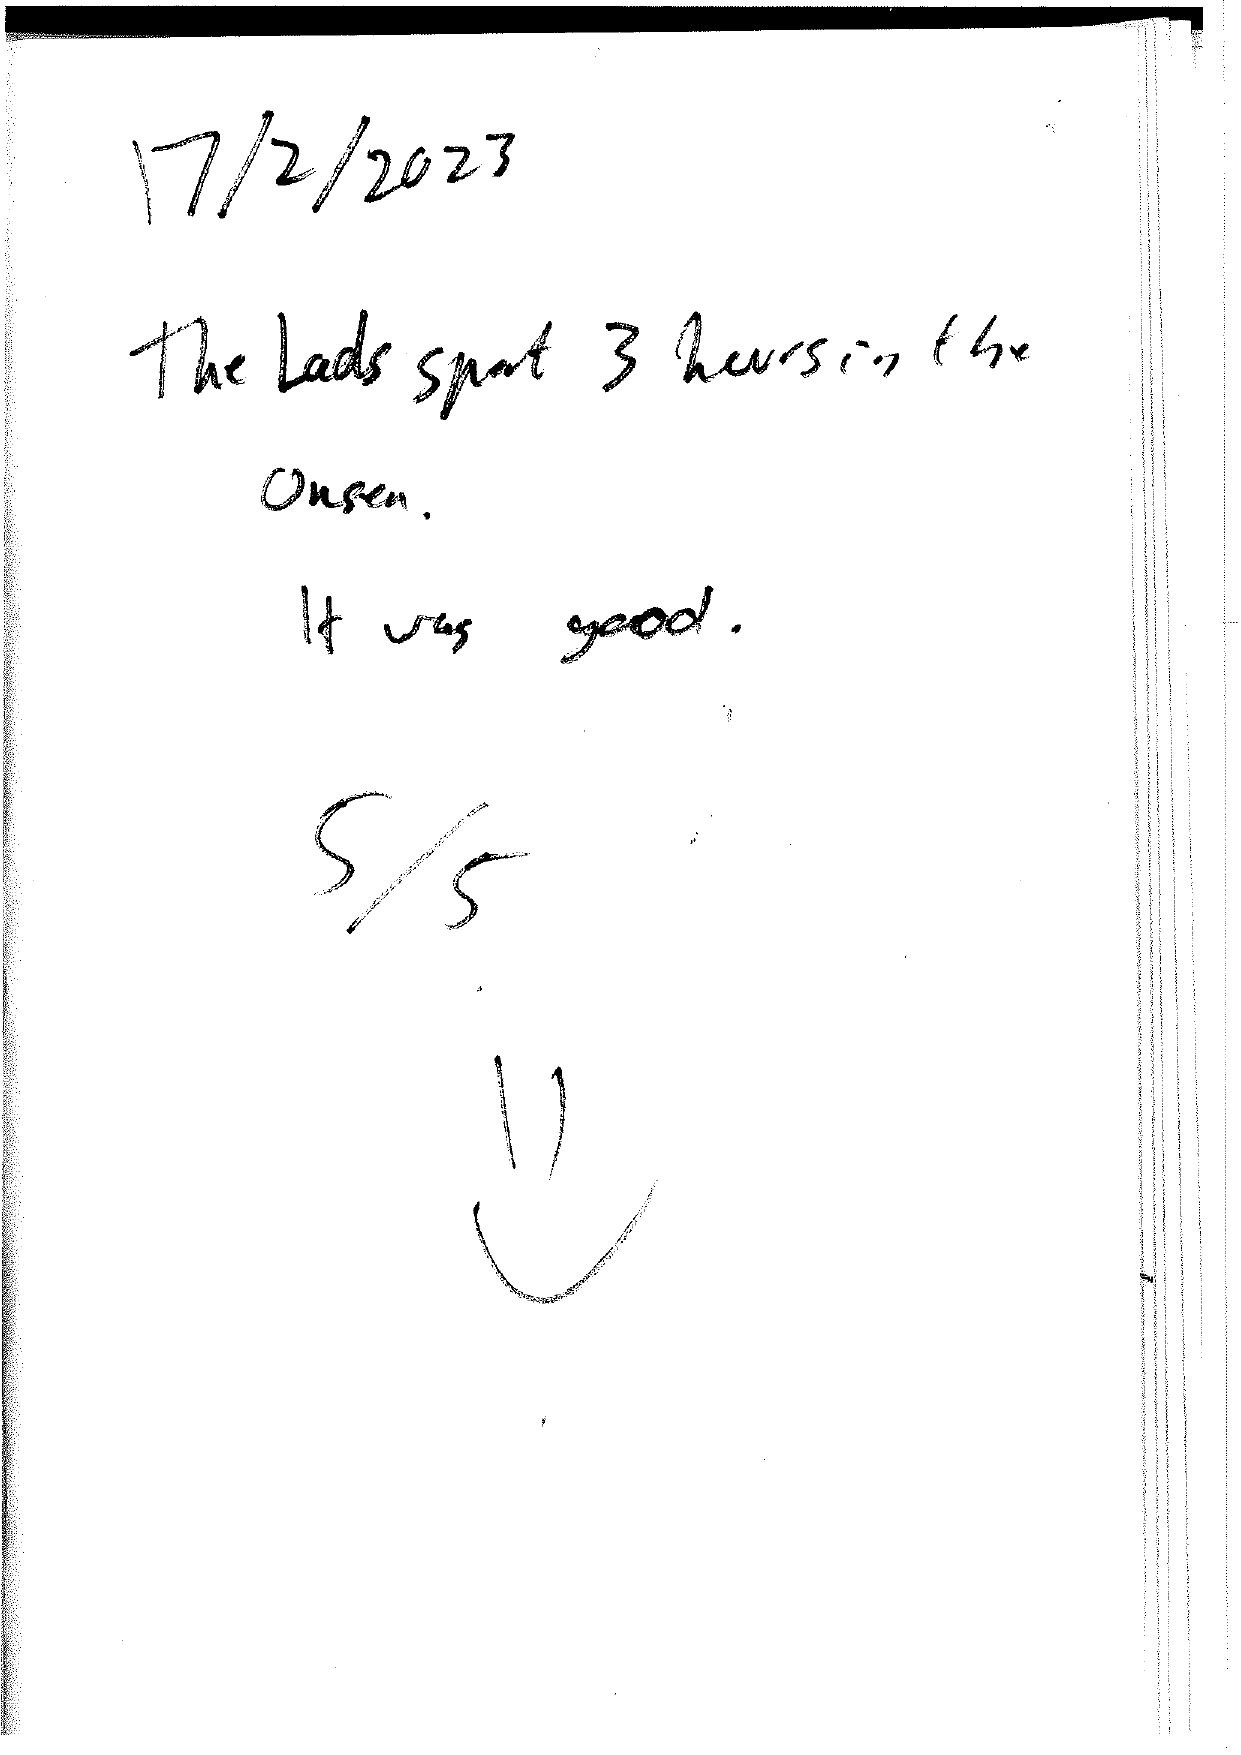 17/2/2023
The Lads spent 3 hours in the
Onsen.
It was good.
5/5